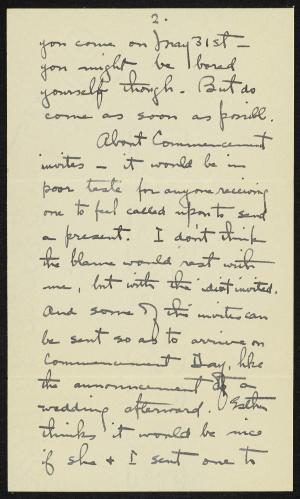 2.
you come on May 31st —
you might be bored
yourself though. But do
come as soon as possibl.
About Commencement
invites — it would be in
poor taste for anyone receiving
one to feel called upon to send
a present. I don't think
the blame would rest with
me, but with the idiot invited.
And some of the invites can
be sent so as to arrive on
Commencement Day, like
the announcement of a
wedding afterward. Esther
thinks it would be nice
if she + I sent one to